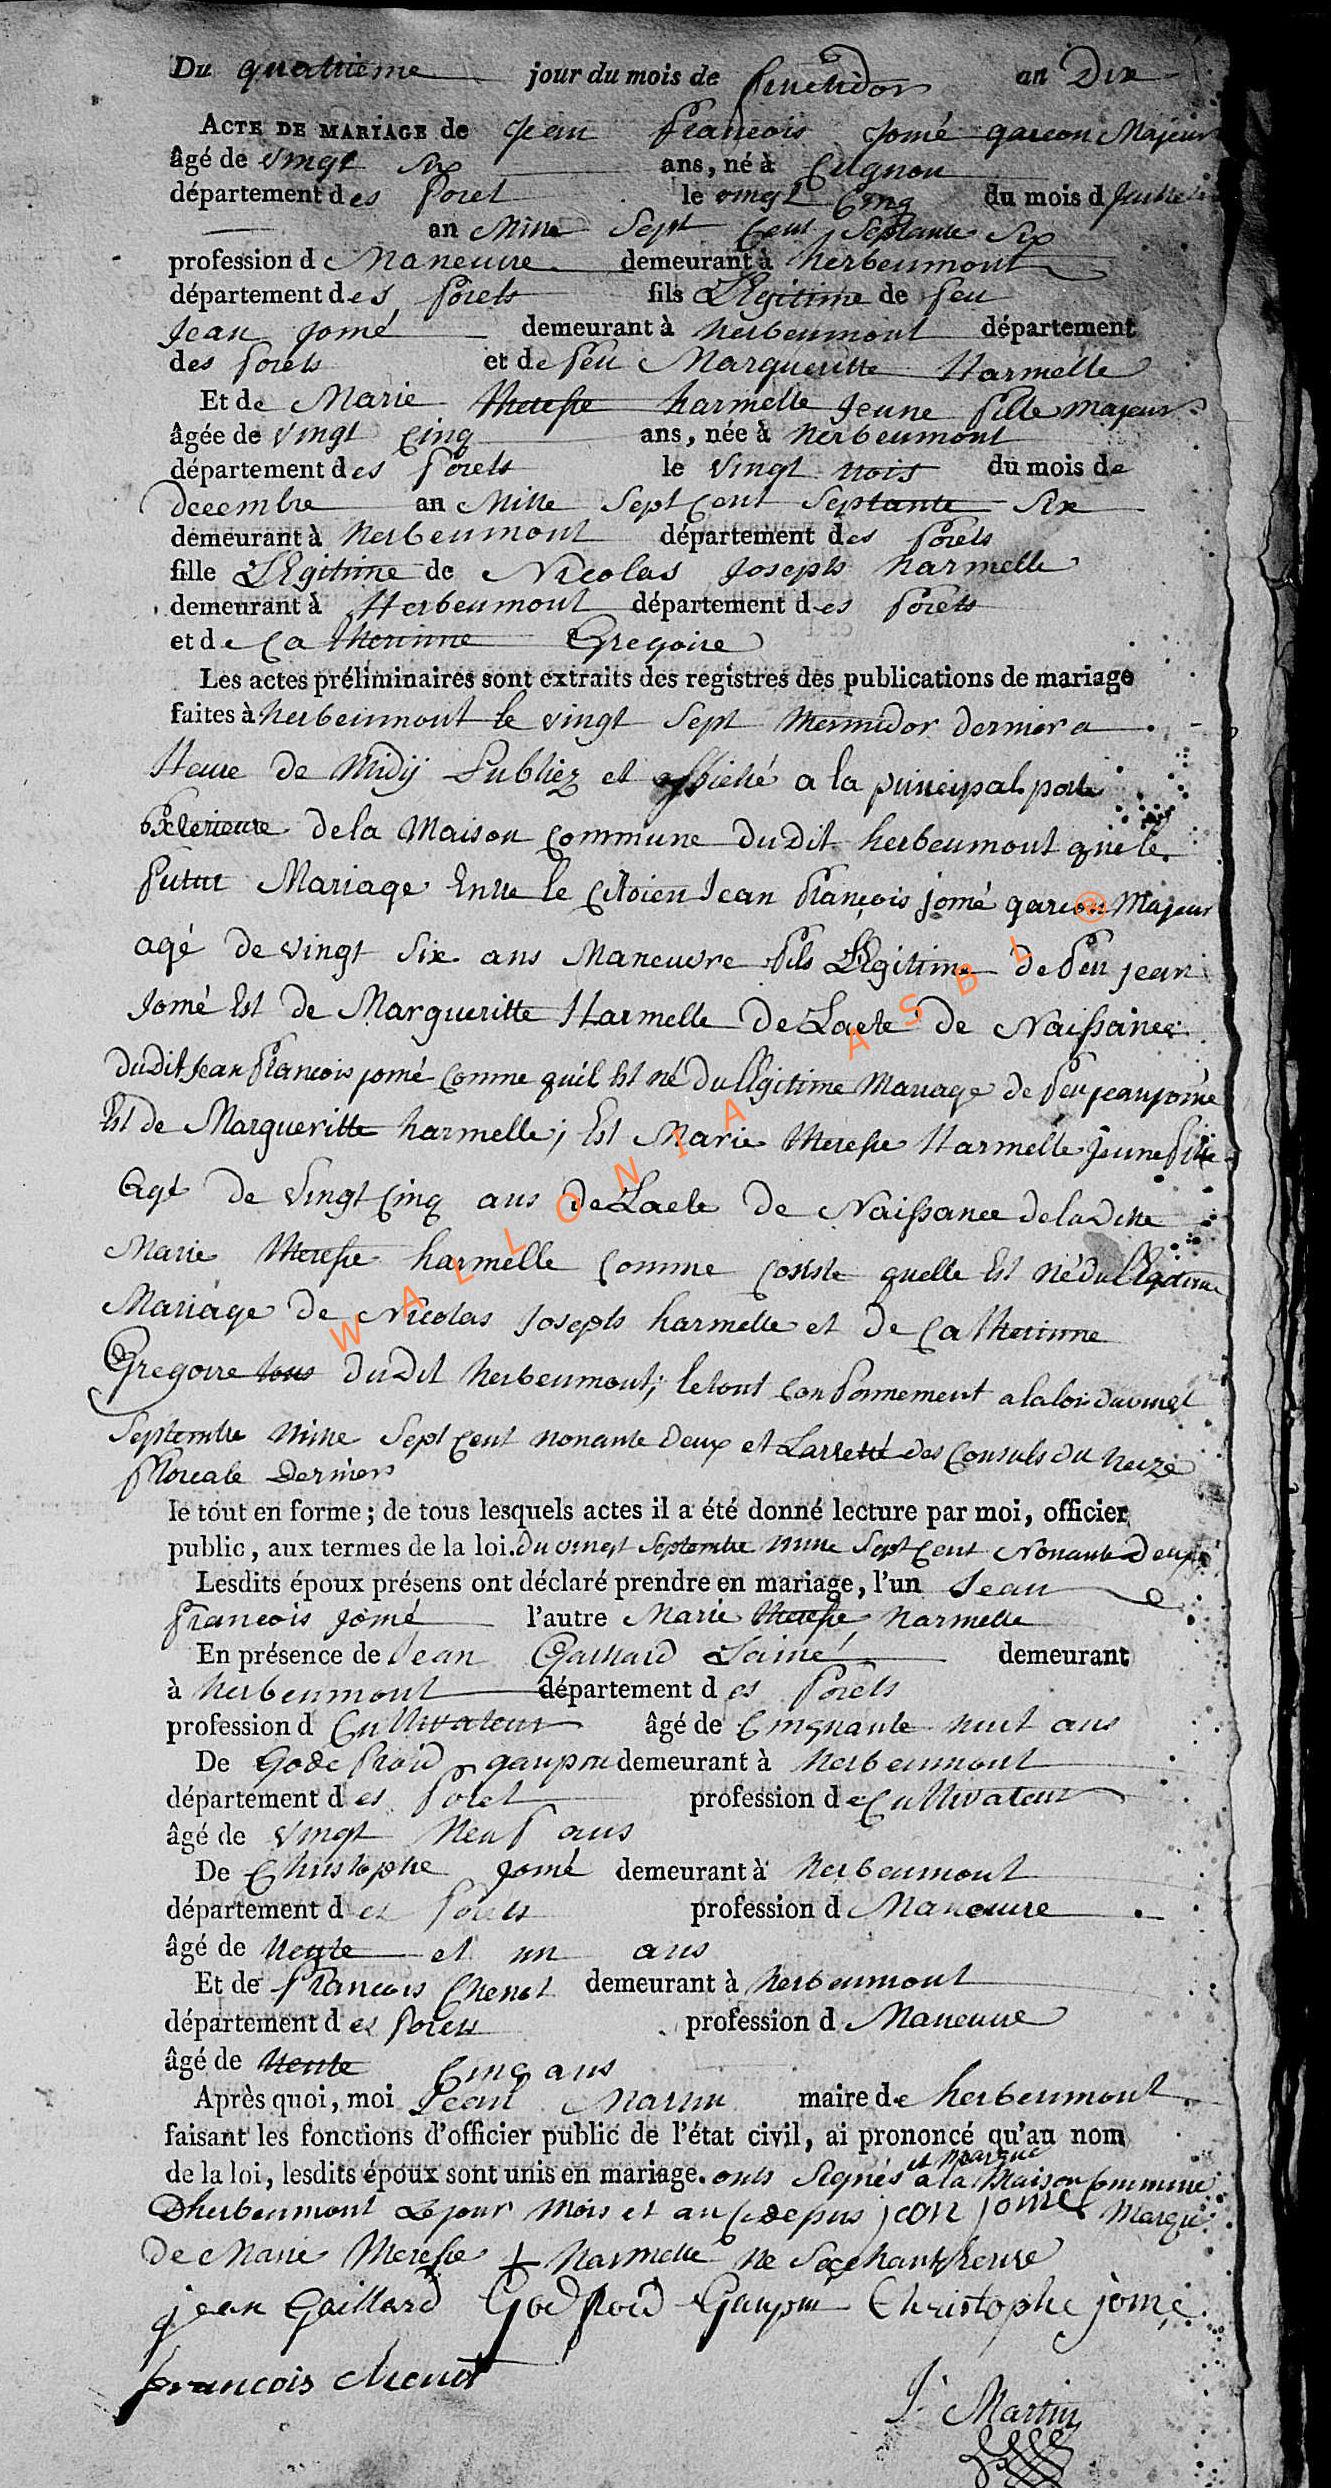 Du quatrieme jour du mois de fructidor an Dix
ACTE DE MARIAGE de Jean francois Jomé garcon Majeur
âgé de vingt six ans, né à Cugnon
département des foret le vingt Cinq du mois d Juillet
an Mille Sept Cent Septante Six
profession d Maneuvre demeurant à herbeumont
département des forets fils LEgitime de feu
Jean Jomé demeurant à herbeumont département
des forets et de feu Margueritte Harmelle
Et de Marie therese harmelle Jeune fille majeur
âgée de vingt Cinq ans, née à herbeumont
département des forets le vingt trois du mois de
decembre an Mille Sept Cent Septante Six
demeurant à herbeumont département des forets
fille LEgitime de Nicolas Joseph harmelle
demeurant à Herbeumont département des forets
et de Catherinne Gregoire
Les actes préliminaires sont extraits des registres des publications de mariage
faites à herbeumont le vingt Sept thermidor dernier a
Heure de Midij Publiez et affiché a la principal porte
Exterieure dela Maison Commune duDit herbeumont que le
futur Mariage Entre le Citoien Jean françois jomé garcon Majeur
agé de vingt Six ans Maneuvre fils LEgitime de feu jean
Jomé Est de Margueritte Harmelle De Lacte de Naissance
duDit Jean francois jomé Comme quil Est né du lEgitime Mariage de feu jean jomé
Est de Margueritte harmelle; Est Marie therese Harmelle Jeune fille
Agé de vingt Cinq ans de Lacte de Naissance dela Ditte
Marie therese harmelle Comme Coste quelle Est né du lEgitime
Mariage de Nicolas Joseph harmelle et de Catherinne
Gregoire tous duDit herbeumont; le tout Conformement a la loi du vingt
Septembre Mille Sept Cent nonante deux et Larretté des Consuls du treize
floreale Dernier
le tout en forme; de tous lesquels actes il a été donné lecture par moi, officier
public, aux termes de la loi. du vingt Septembre mille Sept Cent Nonante Deux
Lesdits époux présens ont déclaré prendre en mariage, l'un Jean
francois Jomé l'autre Marie therese harmelle
En présence de Jean Gaillard Lainé demeurant
à herbeumont département des forets
profession d Cultivateur âgé de Cinquante huit ans
De Godefroid gaupin demeurant à herbeumont
département des foret profession de Cultivateur
âgé de vingt Neuf ans
De Christophe Jomé demeurant à herbeumont
département des forets profession d Maneuvre
âgé de trente et un ans
Et de francois Chenot demeurant à herbeumont
département des forets profession d Maneuvre
âgé de trente Cinq ans
Après quoi, moi Jean Martin maire de herbeumont
faisant les fonctions d'officier public de l'état civil, ai prononcé qu'au nom
de la loi, lesdits époux sont unis en mariage. onts Signés et marqué a la Maison Commune
Dherbeumont Le jour Mois et an jean jomé Marque
De Marie therese + harmelle ne
jean Gaillard Godfroid Gaupin Christophe jomé
francois chenot
J. Martin
WALLONIA ASBL ®